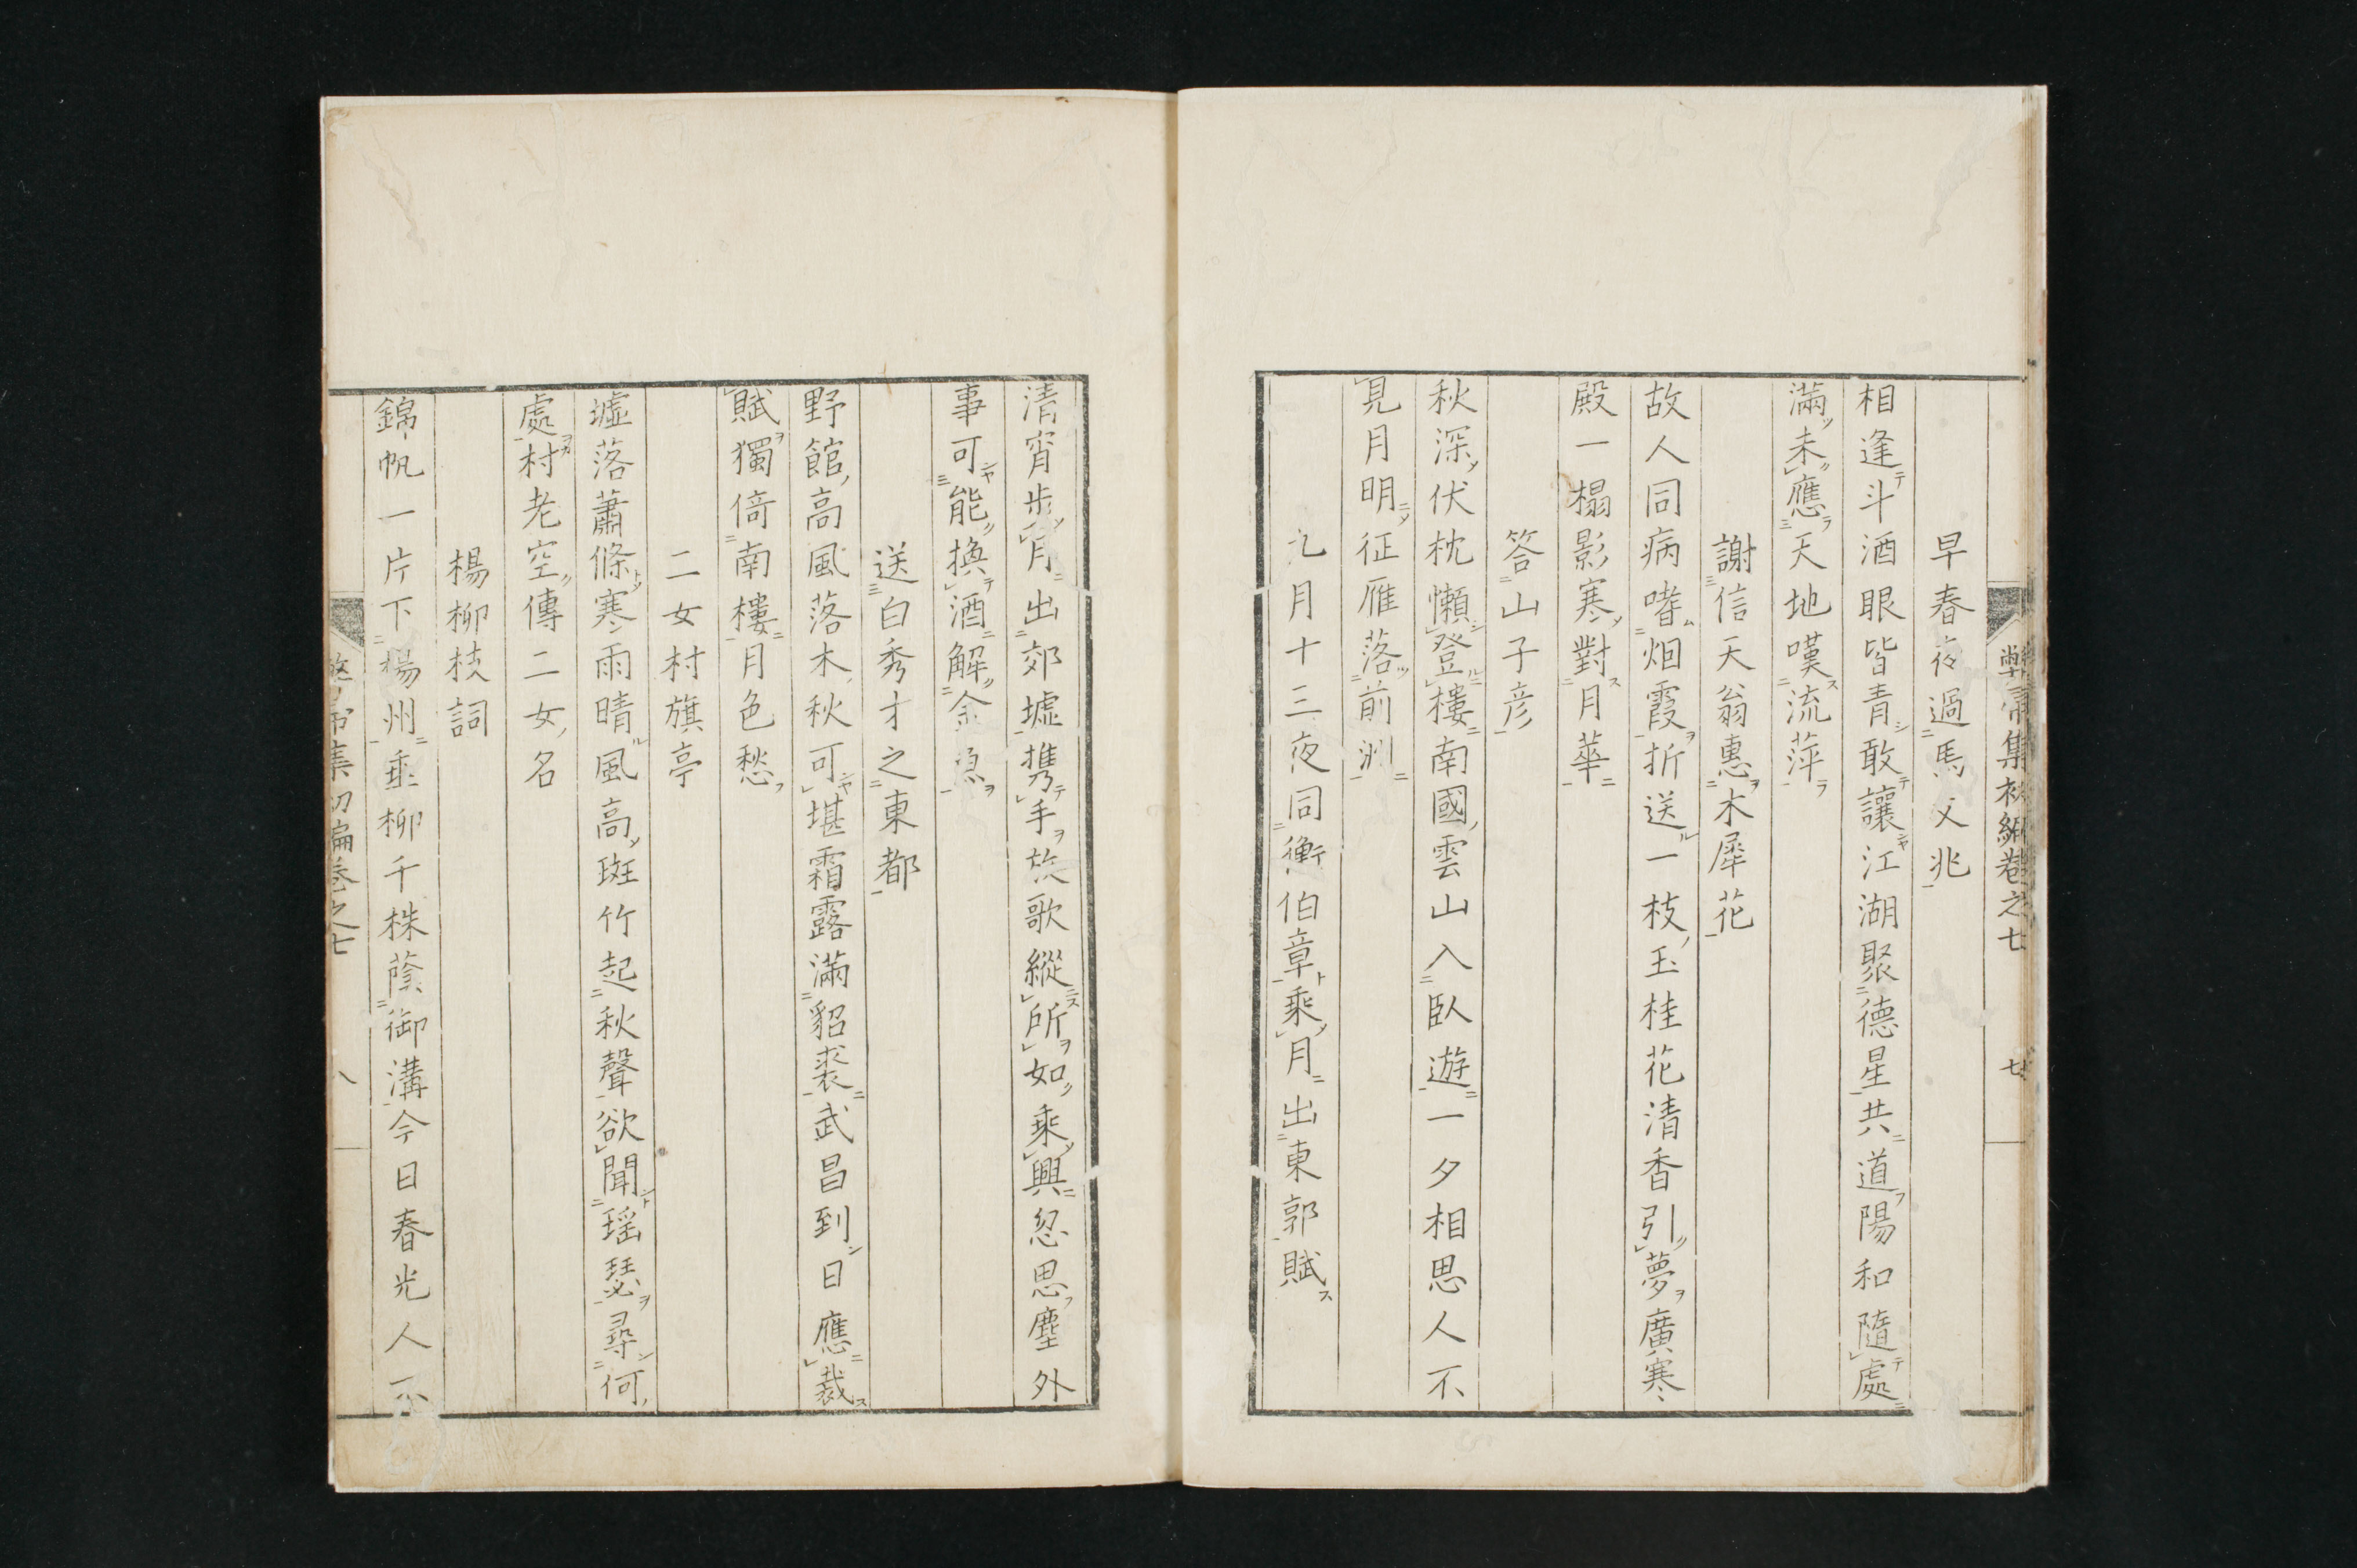 早春夜過馬父兆
相逢斗酒眼皆青敢讓江湖聚德星共道陽和隨處
滿未應天地嘆流萍
謝信天翁惠木犀花
故人同病嗜烟霞折送一枝玉桂花清香引夢廣寒
殿一榻影寒對月華
答山子彦
秋深伏枕懶登樓南國雲山入臥遊一夕相思人不
見月明征雁落前洲
九月十三夜同衡伯章乘月出東郭賦
清宵步月出郊墟携手放歌縱所如乘興忽思塵外
事可能換酒解金魚
送白秀才之東都
野館高風落木秋可堪霜露滿貂裘武昌到日應裁
賦獨倚南樓月色愁
二女村旗亭
墟落蕭條寒雨晴風高斑竹起秋聲欲聞瑶瑟尋何
處村老空傳二女名
楊柳枝詞
錦帆一片下楊州垂柳千株蔭御溝今日春光人不
集初編卷之七
八